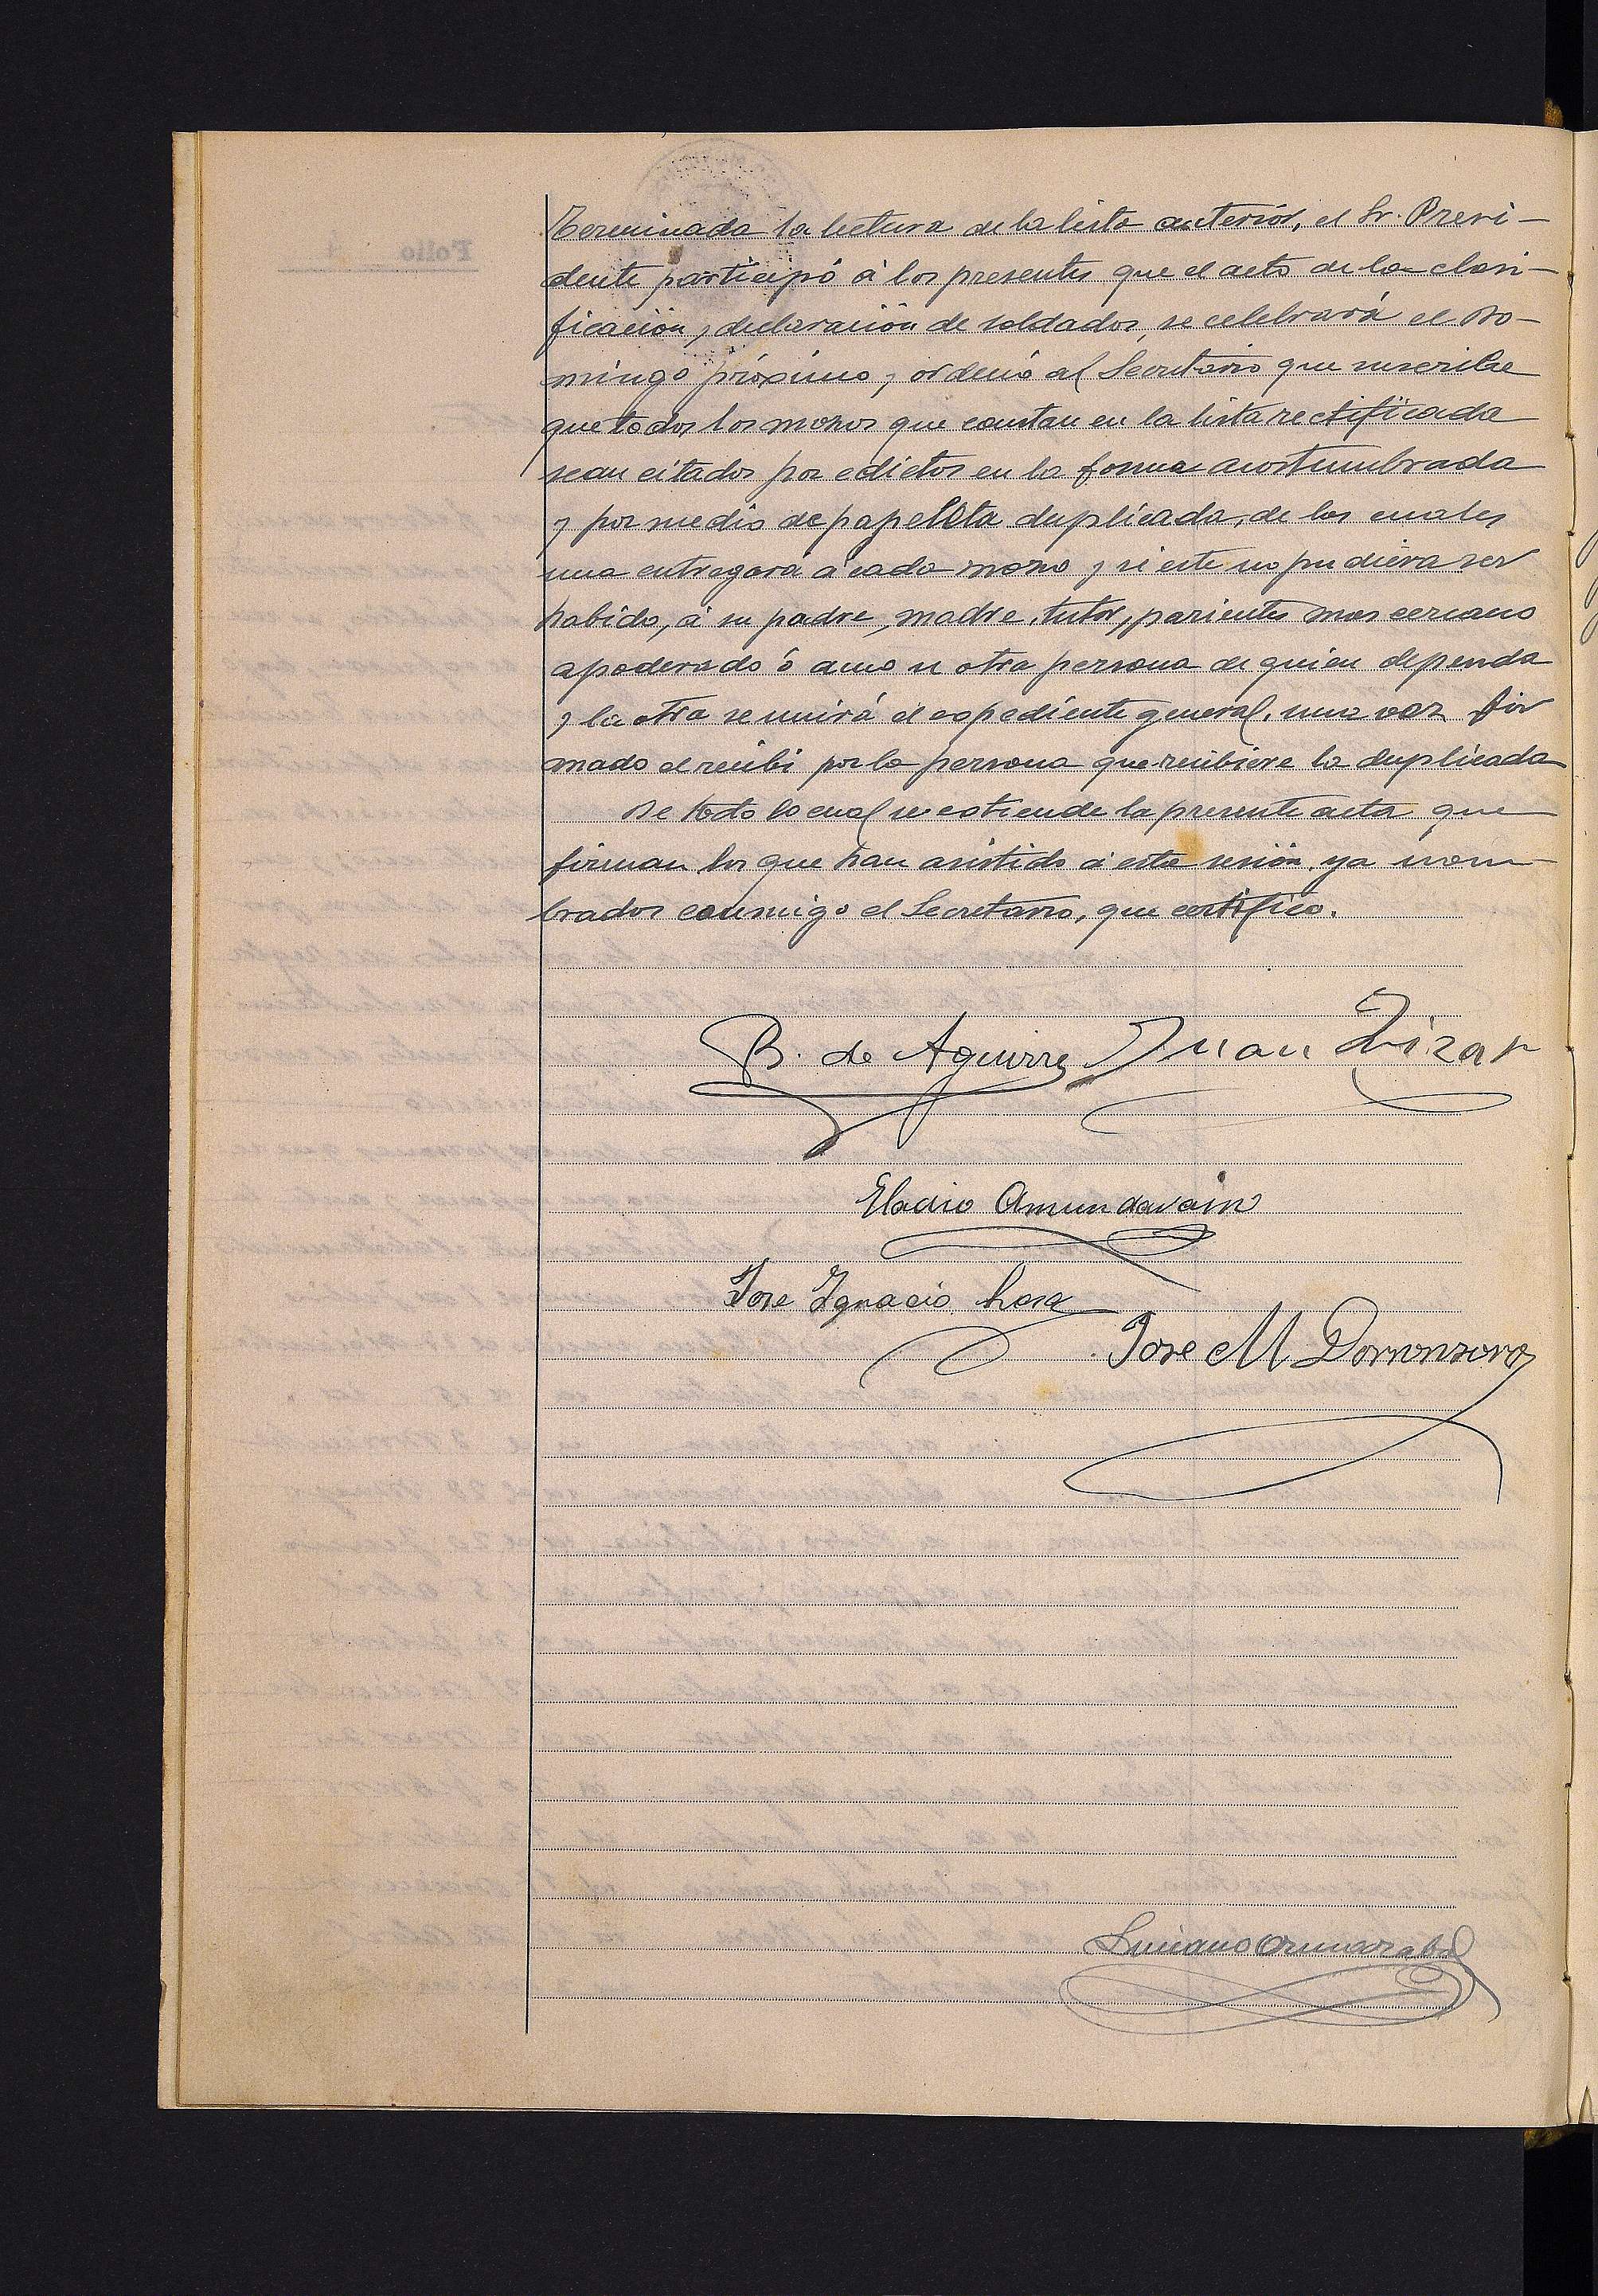 Terminada la lectura de la lista anterior, el Sr. Presi-
dente participó á los presentes que el acto de la clasi-
ficación y declaración de soldados, se celebrará el Do-
mingo próximo, y ordenó al Secretario que suscribe
que todos los mozos que constan en la lista rectificada
sean citados por edictos en la forma acostumbrada
y por medio de papeleta duplicada, de las cuales
una entregará á cada mozo y si este no pudiera ser
habido, á su padre, madre, tutor, parientes mas cercano
apoderado ó amo u otra persona de quien dependa
y la otra se unirá al espediente general, una vez fir
mado el recibi por la persona que recibiere la duplicada
De todo lo cual se estiende la presente acta que
firman los que han asistido á esta sesión, ya nom-
brados conmigo el Secretario, que certifico.
B. de Aguirre Juan
Eladio Amundarain
Jose Ignacio
Jose M Dorronsoro
Luciano
Folio